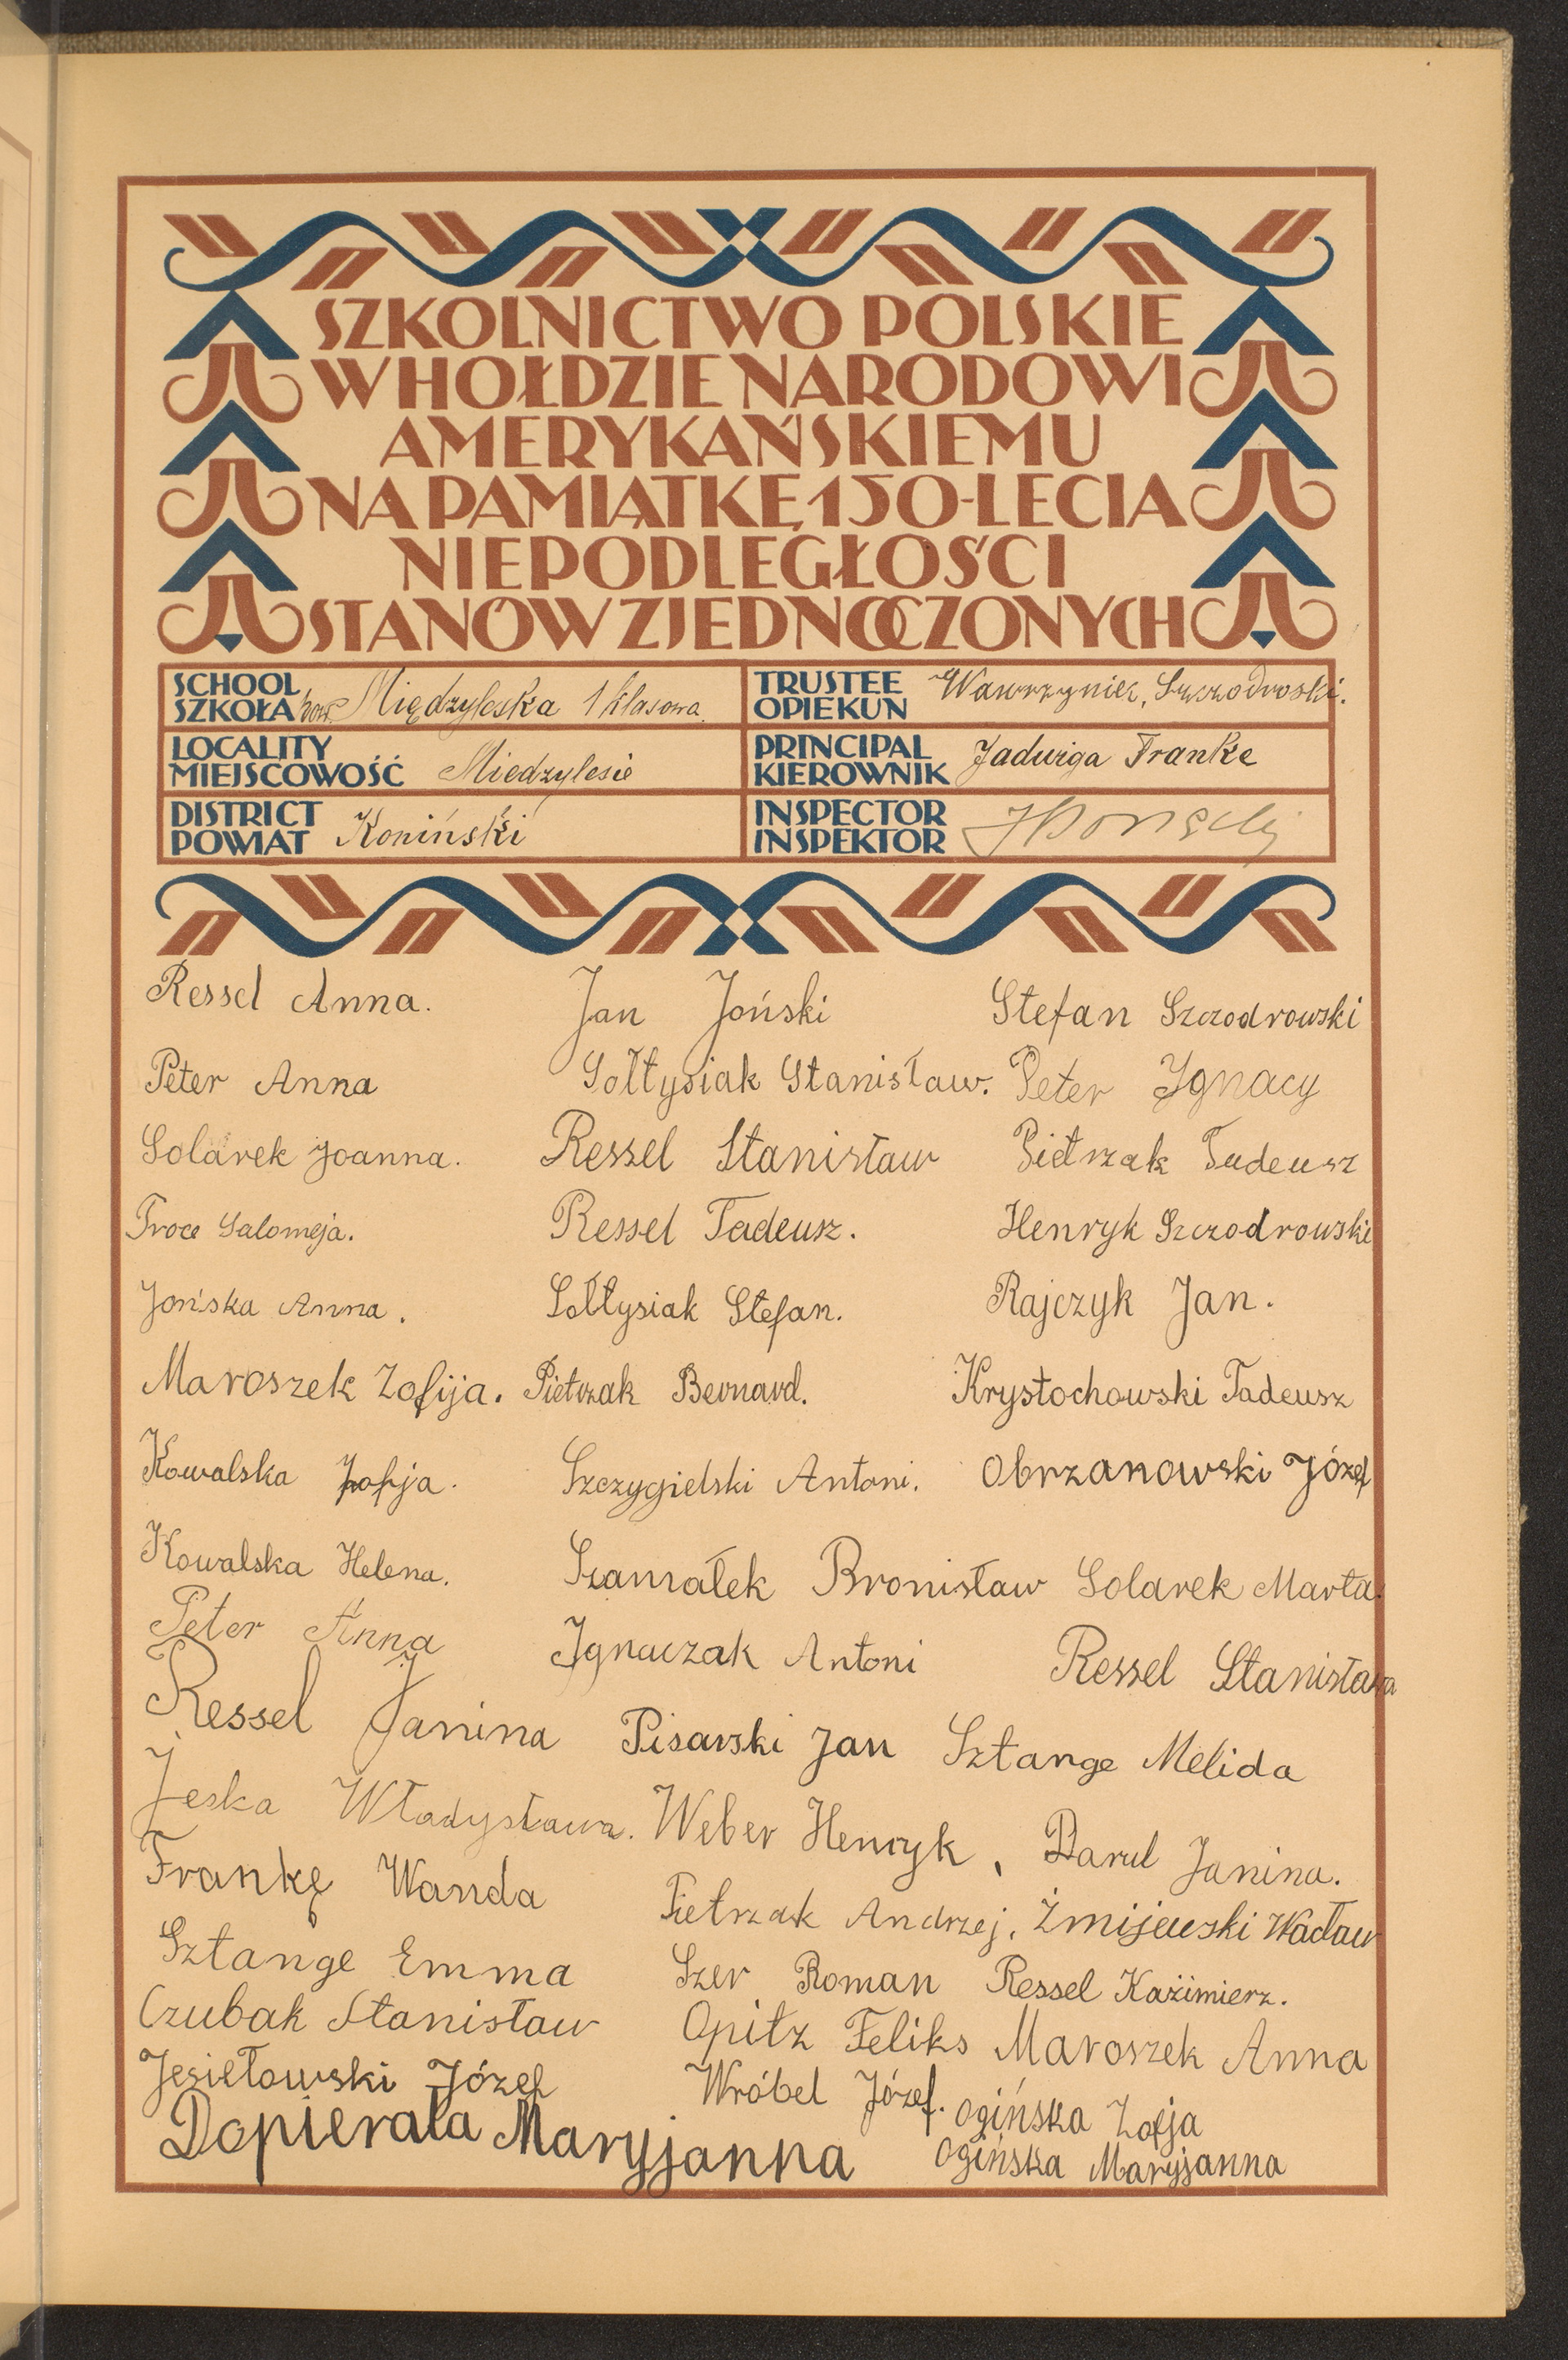 SZKOLNICTWO POLSKIE
W HOŁDZIE NARODOWI
AMERYKAŃSKIEMU
NA PAMIĄTKĘ 150-LECIA
NIEPODLEGŁOŚCI
STANÓW ZJEDNOCZONYCH
SCHOOL
SZKOŁA Międzyleska 1 klasowa
TRUSTEE
OPIEKUN Wawrzyniec, Szczodroski.
LOCALITY
MIEJSCOWOŚĆ Miedzylesie
PRINCIPAL
KIEROWNIK Jadwiga Franke
DISTRICT
POWIAT Koniński
INSPECTOR
INSPEKTOR
Ressel Anna.
Peter Anna
Solarek Joanna.
Troce Salomeja.
Jońska Anna.
Maroszek Zofija.
Kowalska Zofja.
Kowalska Helena.
Peter Anna
Ressel Janina
Jeska Władysława.
Frankę Wanda
Sztange Emma
Czubak Stanisław
Jesiełowski Józef
Dopierała Maryjanna
Jan Joński
Sołtysiak Stanisław.
Ressel Stanisław
Ressel Tadeusz.
Sołtysiak Stefan.
Pietrzak Bernard.
Szczygielski Antoni.
Szamałek Bronisław
Ignaczak Antoni
Pisarski Jan
Weber Henryk,
Pietrzak Andrzej.
Szer Roman
Opitz Feliks
Wróbel Józef.
Stefan Szczodrowski
Peter Ignacy
Pietrzak Tadeusz
Henryk Szczodrowski
Rajczyk Jan.
Krystochowski Tadeusz
Obrzanowski Józef
Solarek Marta.
Ressel Stanisława
Sztange Melida
Darul Janina.
Żmijewski Wacław
Ressel Kazimierz.
Maroszek Anna
Ogińska Zofja
Ogińska Maryjanna